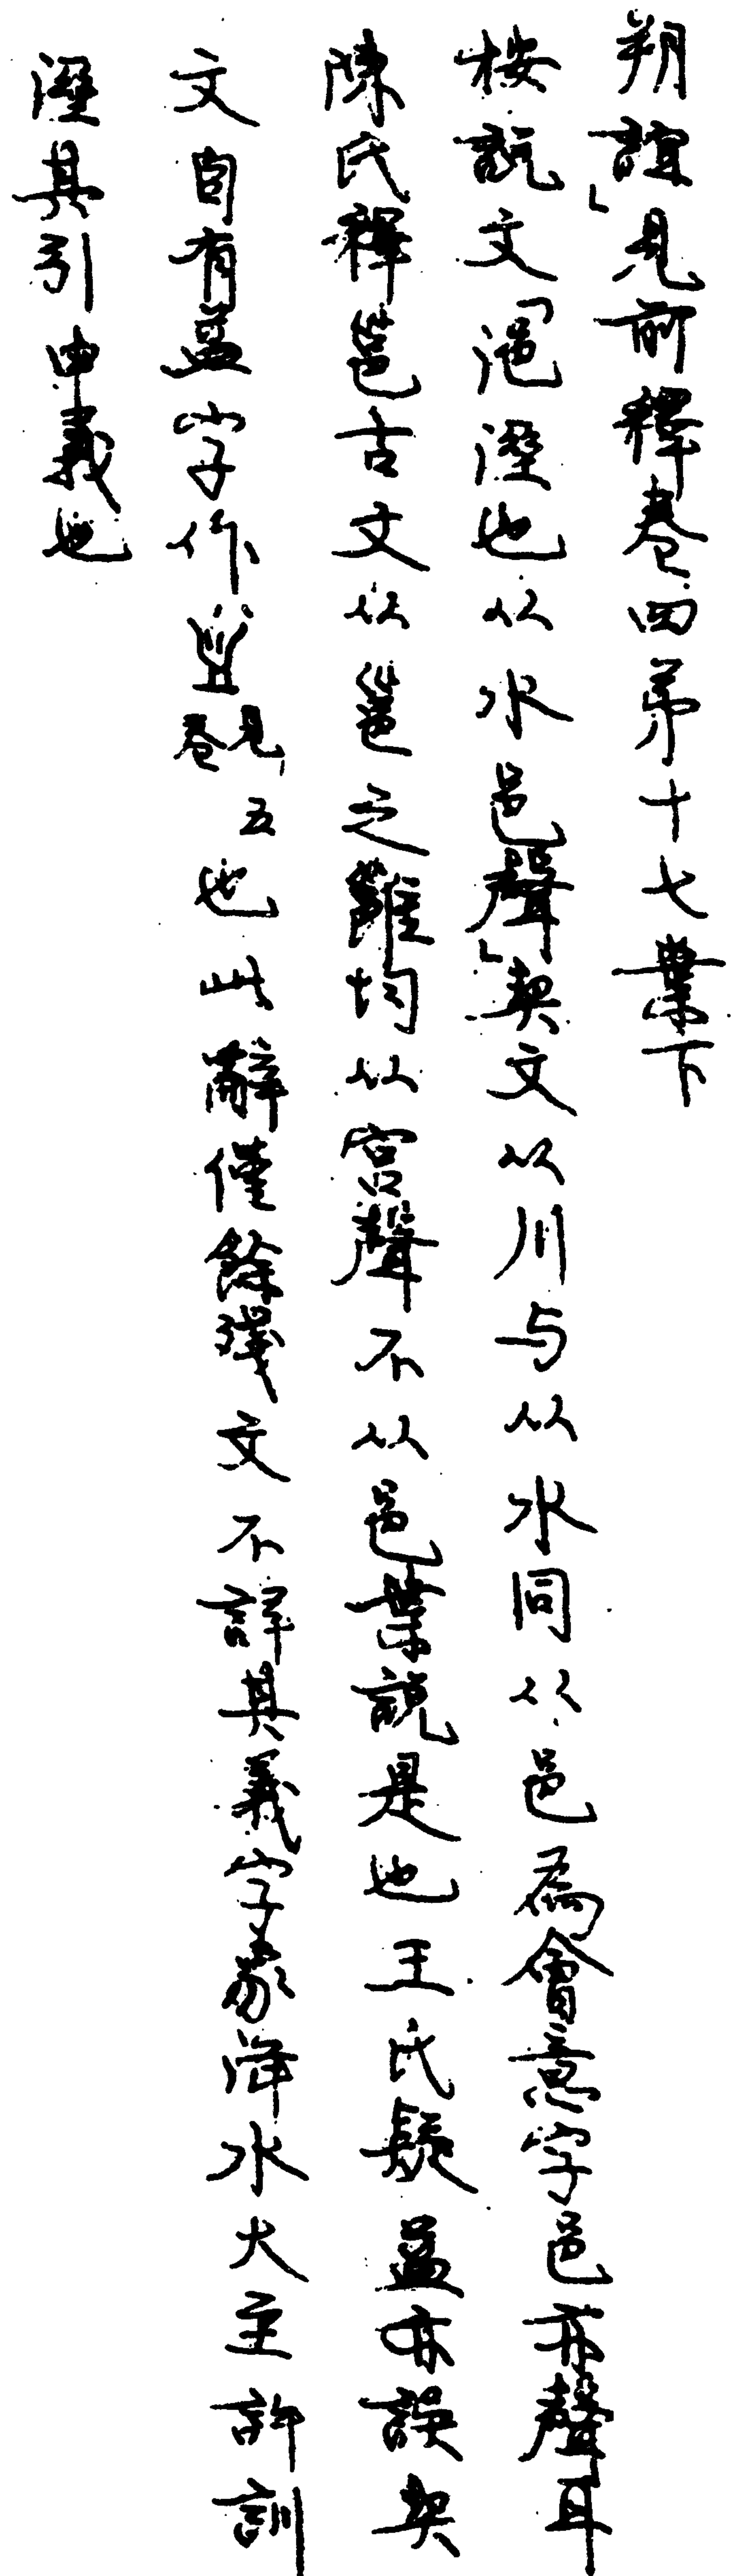 朔誼」見前釋卷四弟十七葉下
桉說文「浥溼也从水邑聲」契文从川与从水同从邑為會意字邑亦聲耳
陳氏釋邕古文从邕之雝均从宮聲不从邑葉說是也王氏疑益亦誤契
文自有益字作見卷五也此辭僅餘殘文不詳其義字象洚水大至許訓
溼其引申義也